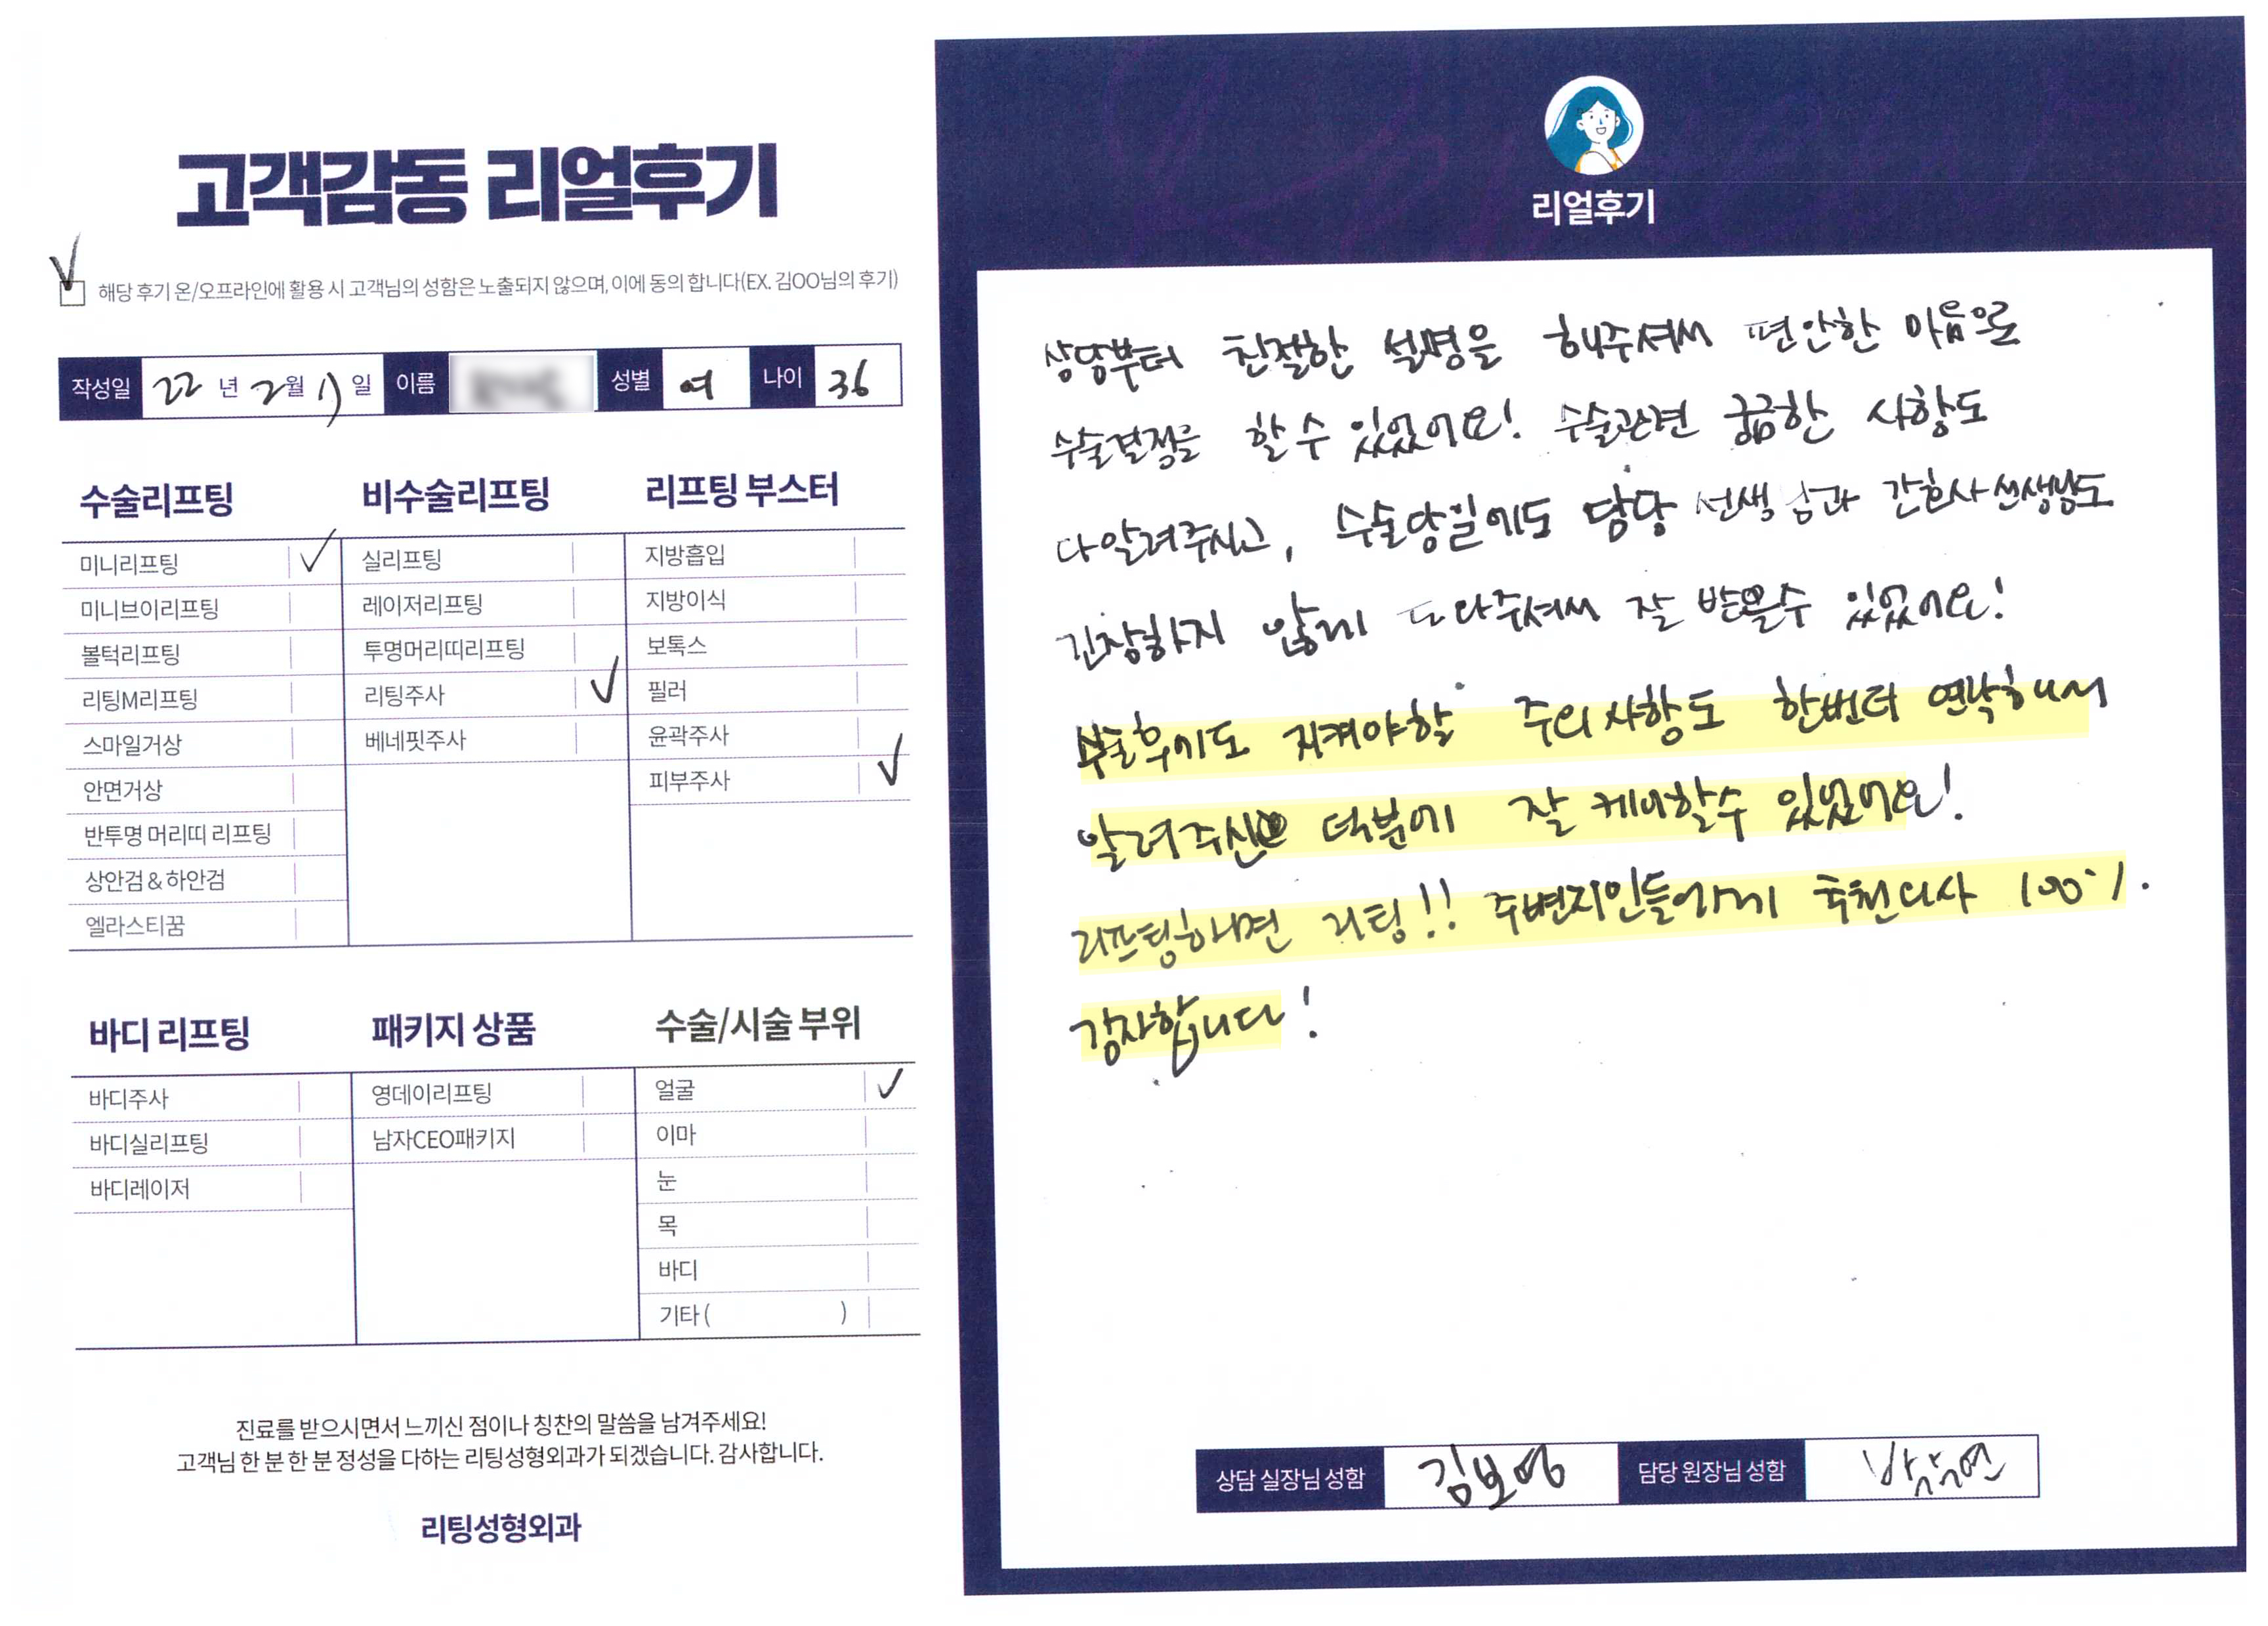 고객감동 리얼후기
해당 후기 온/오프라인에 활용 시 고객님의 성함은 노출되지 않으며, 이에 동의 합니다(EX. 김OO님의 후기)
작성일 22 년 2월 17 일 이름 성별 여 나이 36
수술리프팅
미니리프팅
미니브이리프팅
볼턱리프팅
리팅M리프팅
스마일거상
안면거상
반투명 머리띠 리프팅
상안검 & 하안검
엘라스티꿈
비수술리프팅
실리프팅
레이저리프팅
투명머리띠리프팅
리팅주사
베네핏주사
리프팅 부스터
지방흡입
지방이식
보톡스
필러
윤곽주사
피부주사
바디 리프팅
바디주사
바디실리프팅
바디레이저
패키지 상품
영데이리프팅
남자CEO패키지
수술/시술 부위
얼굴
이마
눈
목
바디
기타 ( )
진료를 받으시면서 느끼신 점이나 칭찬의 말씀을 남겨주세요!
고객님 한 분 한 분 정성을 다하는 리팅성형외과가 되겠습니다. 감사합니다.
리팅성형외과
리얼후기
상담부터 친절한 설명을 해주셔서 편안한 마음으로
수술결정을 할 수 있었어요! 수술관련 궁금한 사항도
다 알려주시고, 수술당일에도 담당 선생님과 간호사선생님도
긴장하지 않게 도와주셔서 잘 받을수 있었어요!
수술후에도 지켜야할 주의사항도 한번더 연락해서
알려주신 덕분에 잘 케어할수 있었어요!
리프팅하면 리팅!! 주변지인들에게 추천의사 100%.
감사합니다!
상담 실장님 성함 김보영 담당 원장님 성함